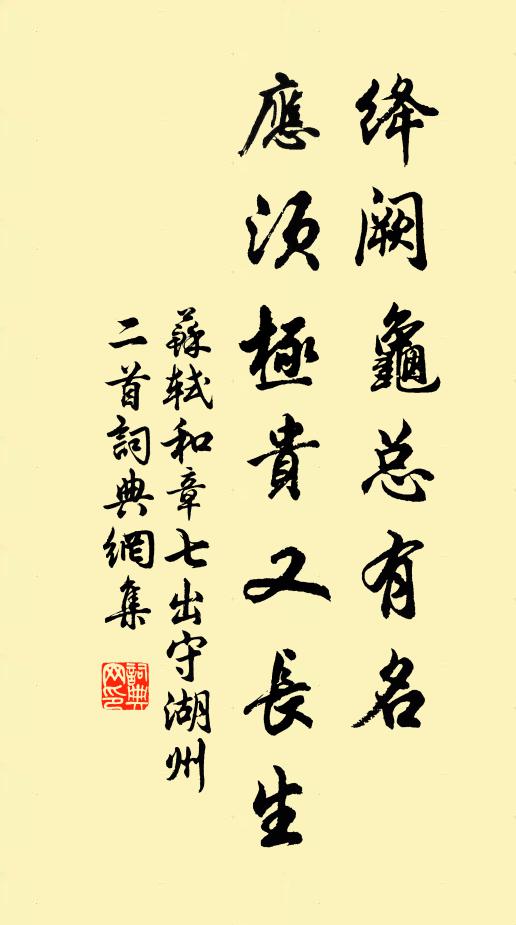 绛阙龜总有名
應須極貴又長生
蘇軾和章七出守湖州
二首詞典網集
詞典网印